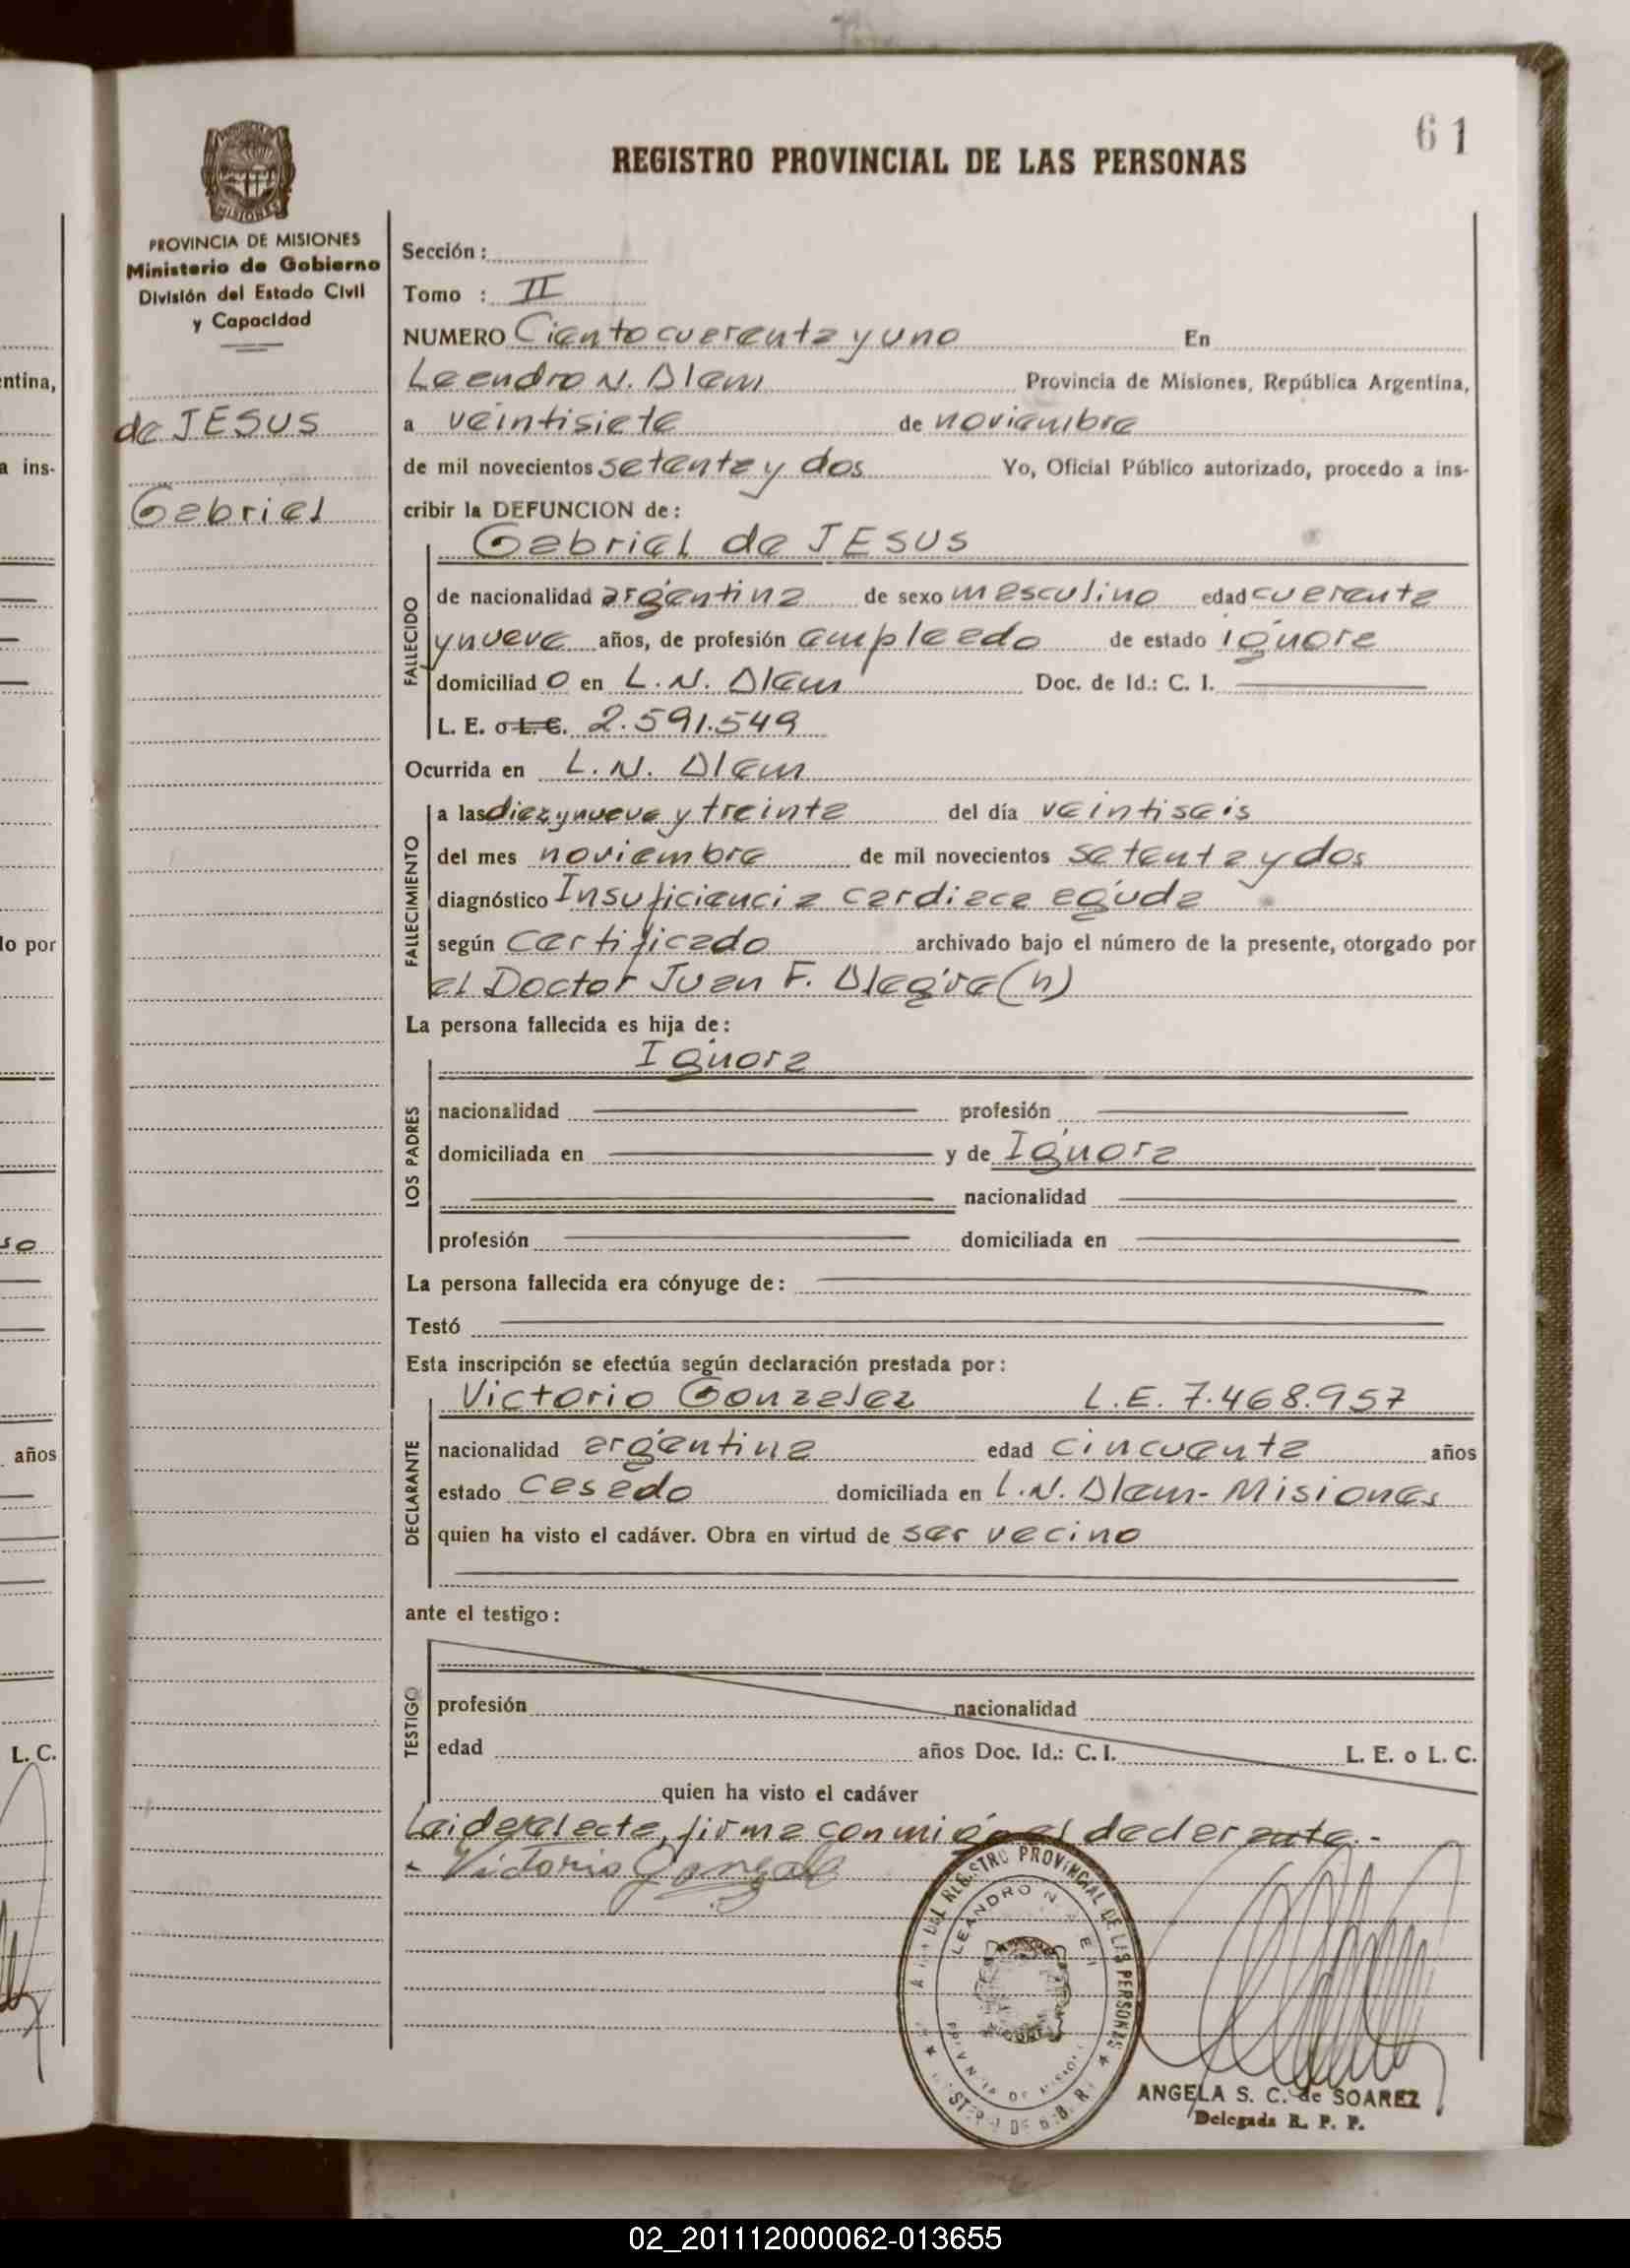 61
REGISTRO PROVINCIAL DE LAS PERSONAS
MISIONES
PROVINCIA DE MISIONES
Ministerio de Gobierno
División del Estado Civil
y Capacidad
de JESUS
Gabriel
Sección:
Tomo : II
NUMERO Ciento cuarenta y uno En
Leandro N. Alem Provincia de Misiones, República Argentina,
a veintisiete de noviembre
de mil novecientos setenta y dos Yo, Oficial Público autorizado, procedo a ins-
cribir la DEFUNCION de:
Gabriel de JESUS
FALLECIDO
de nacionalidad argentina de sexo masculino edad cuarenta
y nueve años, de profesión empleado de estado ignora
domiciliado en L. N. Alem Doc. de Id.: C. I.
L. E. o L. C. 2.591.549
Ocurrida en L. N. Alem
FALLECIMIENTO
a las diez y nueve y treinta del día veintiseis
del mes noviembre de mil novecientos setenta y dos
diagnóstico Insuficiencia cardiaca aguda
según certificado archivado bajo el número de la presente, otorgado por
el Doctor Juan F. Alegre (h)
La persona fallecida es hija de:
Ignora
LOS PADRES
nacionalidad profesión
domiciliada en y de Ignora
nacionalidad
profesión domiciliada en
La persona fallecida era cónyuge de:
Testó
Esta inscripción se efectúa según declaración prestada por:
Victorio Gonzalez L.E. 7.468.957
DECLARANTE
nacionalidad argentina edad cincuenta años
estado casado domiciliada en L.N. Alem - Misiones
quien ha visto el cadáver. Obra en virtud de ser vecino
ante el testigo:
TESTIGO
profesión nacionalidad
edad años Doc. Id.: C. I. L. E. o L. C.
quien ha visto el cadáver
Leida el acta, firma conmigo el declarante.-
Victorio Gonzalez
DEL REGISTRO PROVINCIAL DE LAS PERSONAS
LEANDRO N.
ANGELA S. C. de SOAREZ
Delegada R. P. P.
ntina,
a ins-
lo por
so
años
L. C.
02_201112000062-013655